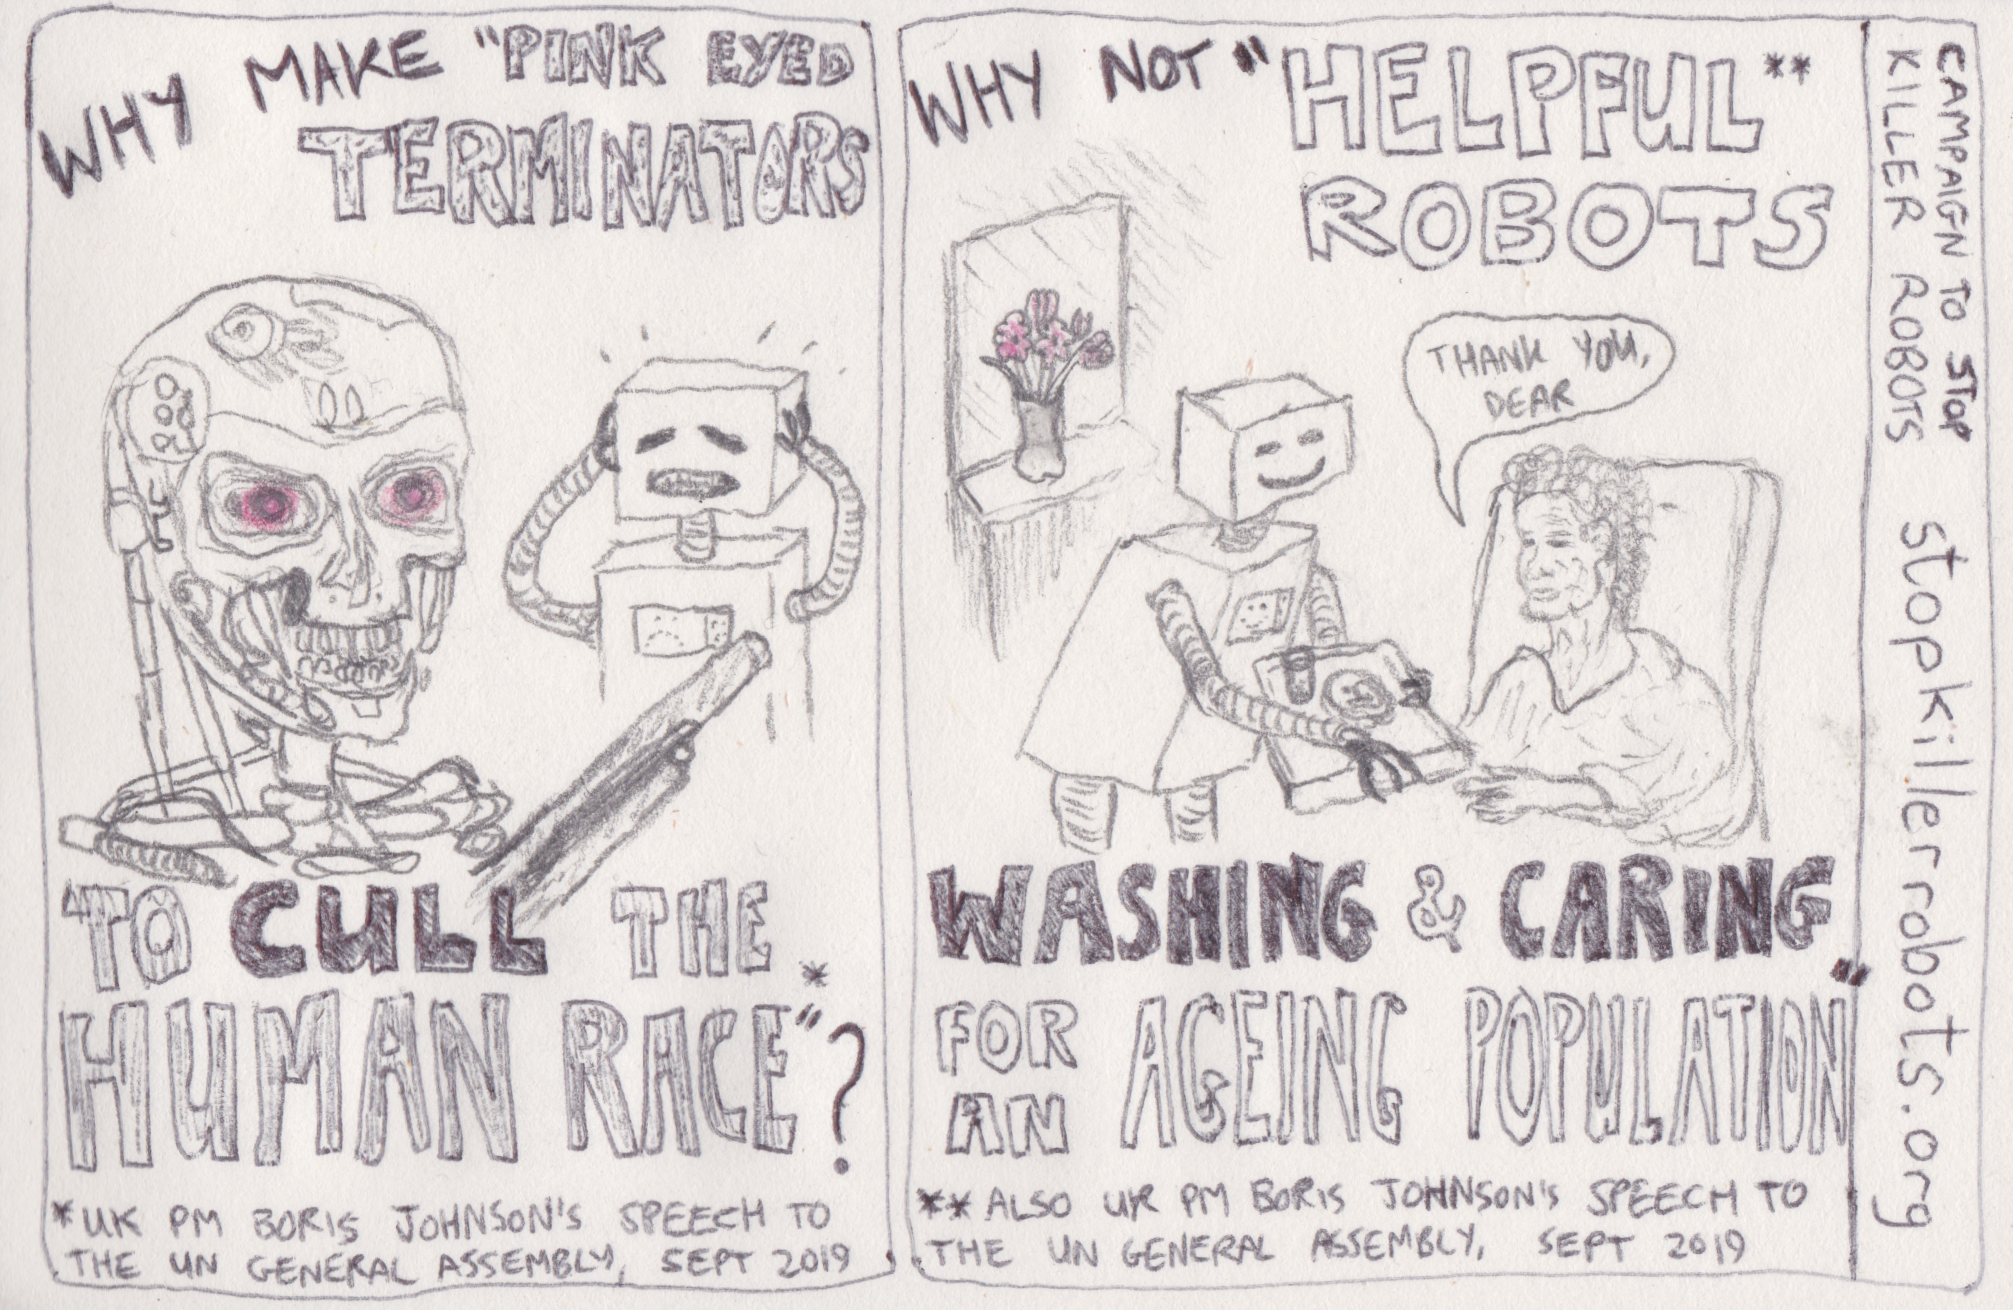 WHY MAKE "PINK EYED
TERMINATORS
TO CULL THE
HUMAN RACE"*?
*UK PM BORIS JOHNSON'S SPEECH TO
THE UN GENERAL ASSEMBLY, SEPT 2019
WHY NOT "HELPFUL**
ROBOTS
THANK YOU,
DEAR
WASHING & CARING"
FOR
AN AGEING POPULATION
**ALSO UK PM BORIS JOHNSON'S SPEECH TO
THE UN GENERAL ASSEMBLY, SEPT 2019
CAMPAIGN TO STOP
KILLER ROBOTS
stopkillerrobots.org